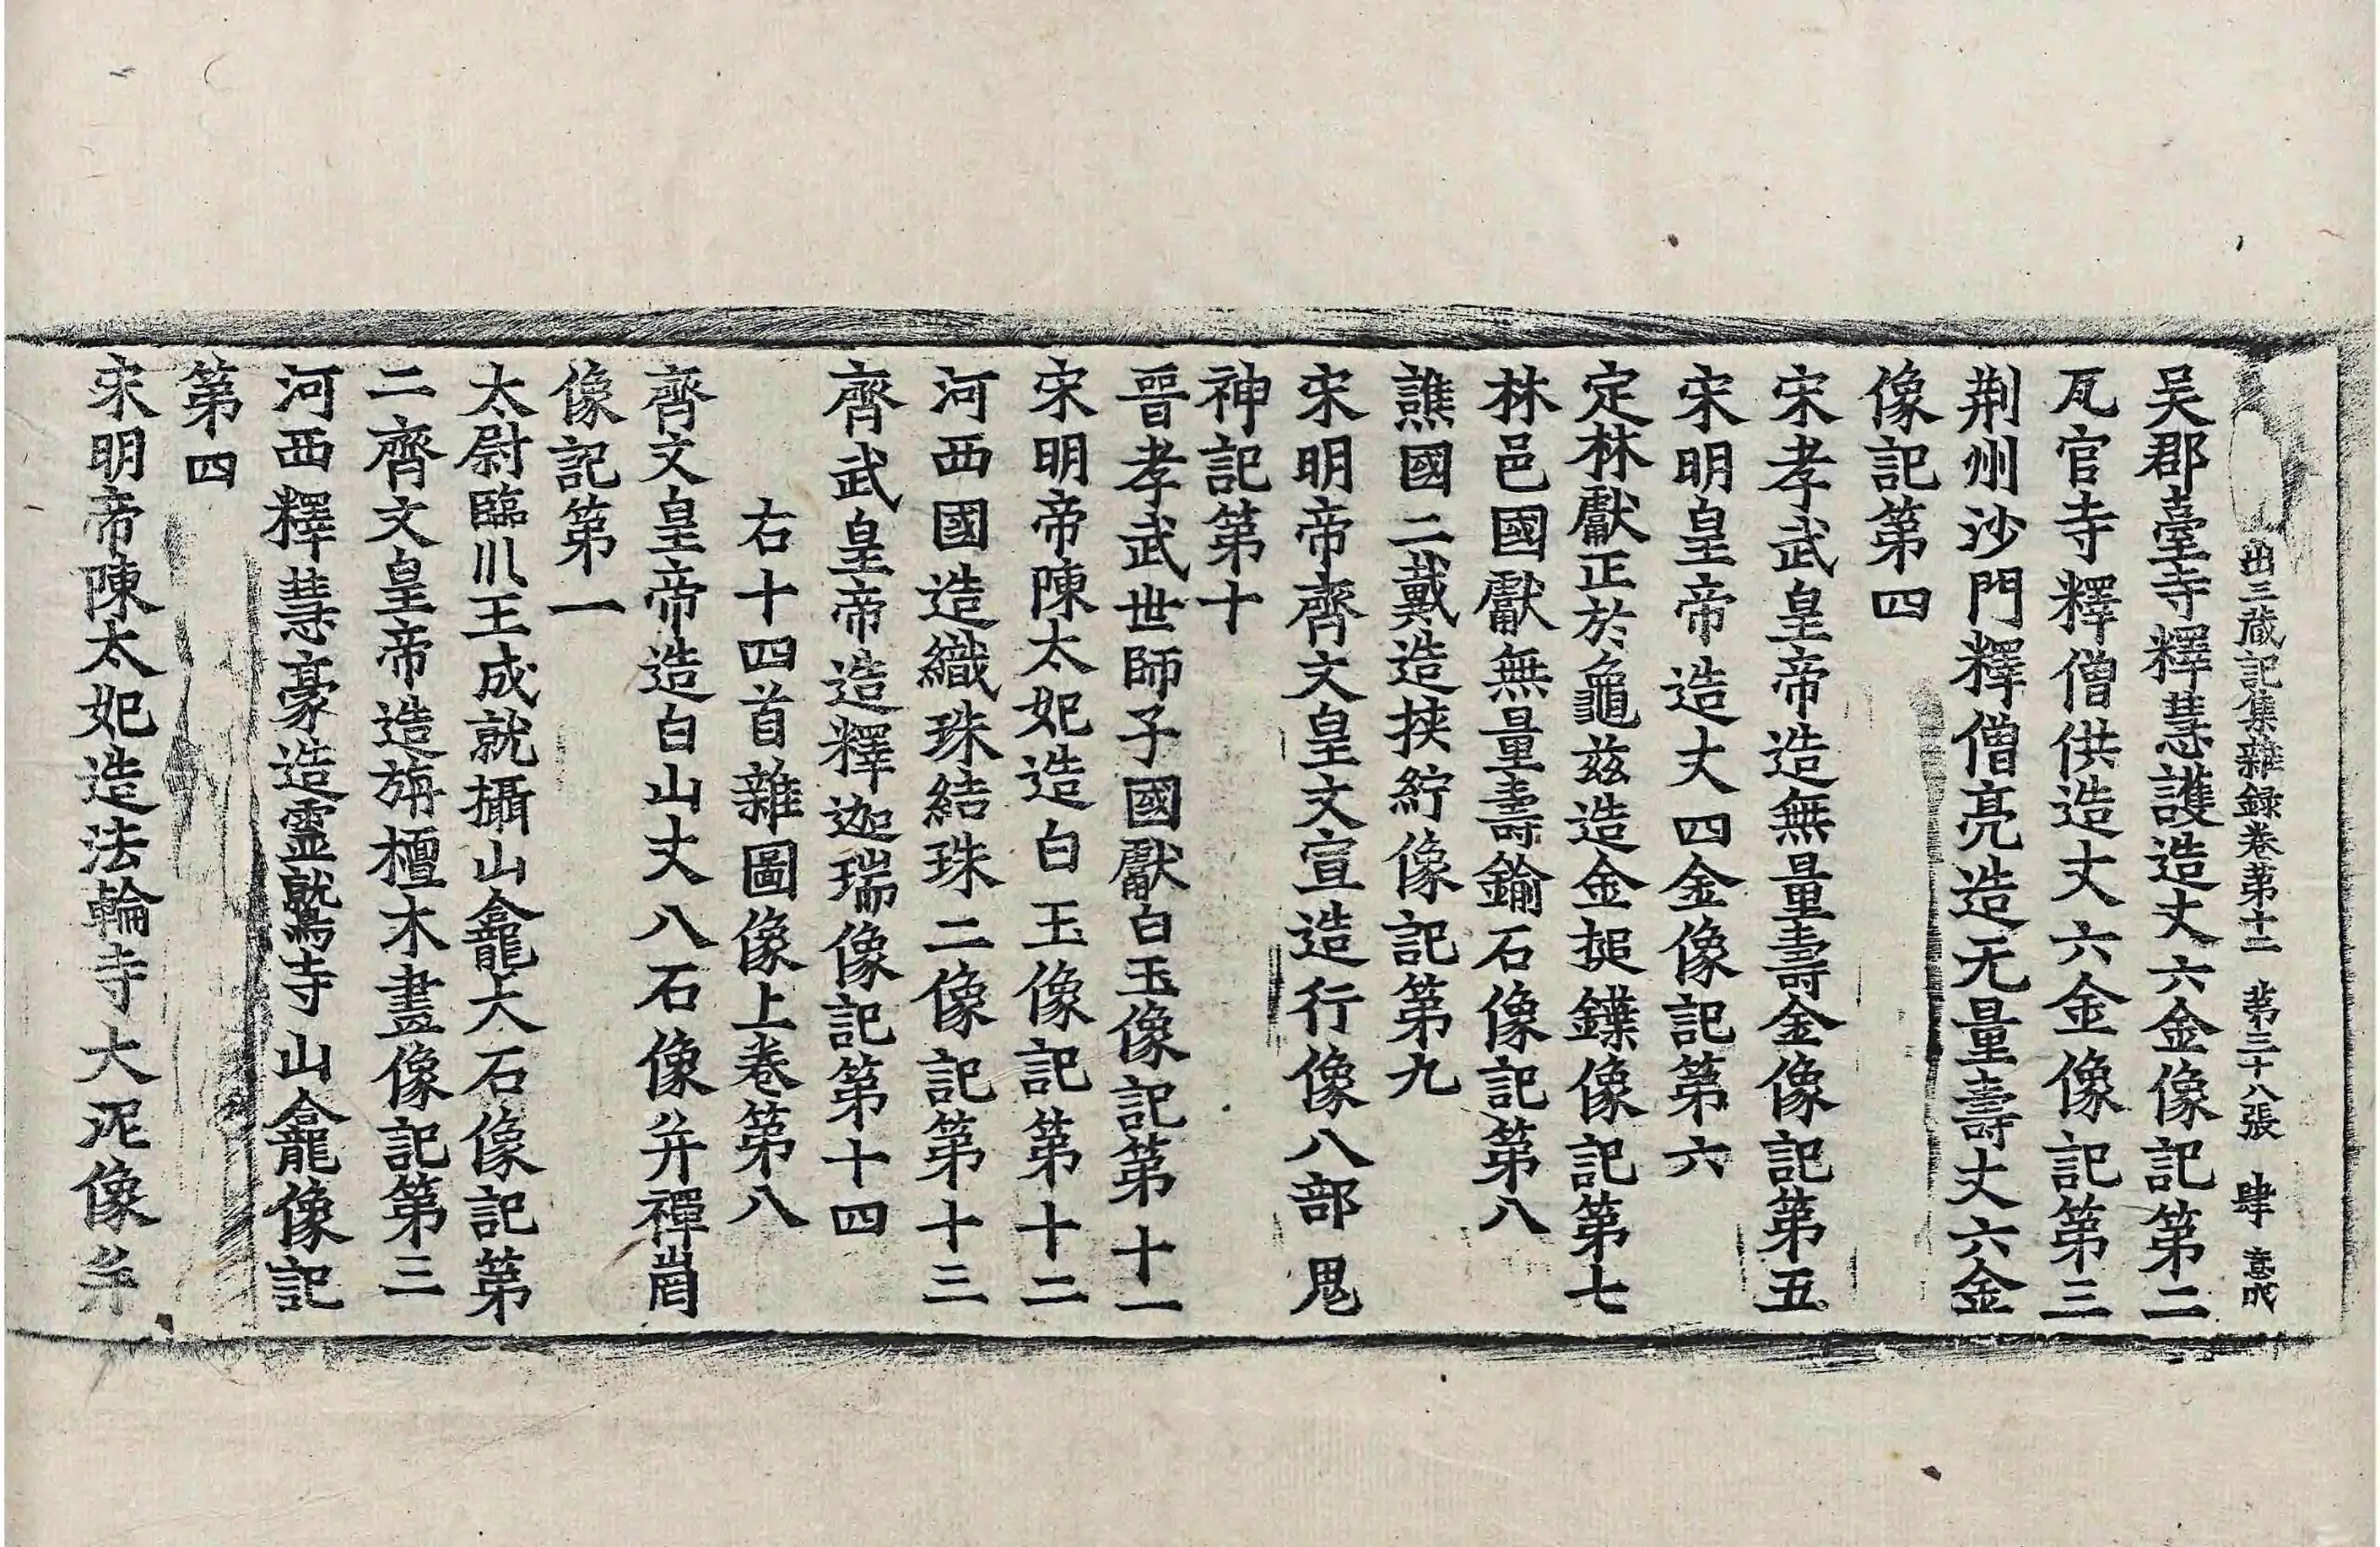 出三藏記集雜録卷第十二 第三十八張 肆 意成
吴郡臺寺釋慧護造丈六金像記第二
瓦官寺釋僧供造丈六金像記第三
荆州沙門釋僧亮造无量壽丈六金
像記第四
宋孝武皇帝造無量壽金像記第五
宋明皇帝造丈四金像記第六
定林獻正於龜兹造金搥鍱像記第七
林邑國獻無量壽鍮石像記第八
譙國二戴造挾紵像記第九
宋明帝齊文皇文宣造行像八部鬼
神記第十
晉孝武世師子國獻白玉像記第十一
宋明帝陳太妃造白玉像記第十二
河西國造織珠結珠二像記第十三
齊武皇帝造釋迦瑞像記第十四
右十四首雜圖像上卷第八
齊文皇帝造白山丈八石像并禪崗
像記第一
太尉臨川王成就攝山龕大石像記第
二齊文皇帝造旃檀木畫像記第三
河西釋慧豪造靈鷲寺山龕像記
第四
宋明帝陳太妃造法輪寺大泥像并